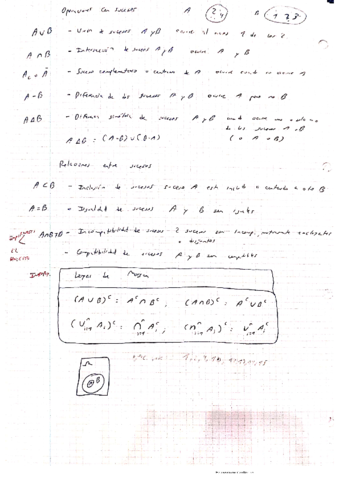 Operaciones con sucesos A B 1 2 3
A∪B - Unión de sucesos A y B ocurre al menos 1 de los 2
A∩B - Intersección de sucesos A y B ocurre A y B
- Suceso complementario o contrario de A ocurre cuando no ocurre A
A-B - Diferencia de dos sucesos A y B ocurre A pero no B
AΔB - Diferencia simétrica de sucesos A y B
de los sucesos A o B
AΔB = (A-B)∪(B-A) (o A o B)
Relaciones entre sucesos
A⊂B - Inclusión de sucesos suceso A está incluido o contenido a otro B
A=B - Igualdad de sucesos A y B son iguales
- Incompatibilidad de sucesos - 2 sucesos son incomp. mutuamente excluyentes
o disjuntos
- Compatibilidad de sucesos A y B son compatibles
Leyes de Morgan
(A∪B)ᶜ = Aᶜ∩Bᶜ ; (A∩B)ᶜ = Aᶜ∪Bᶜ
(∪ⁿᵢ₌₁ Aᵢ)ᶜ = ∩ⁿᵢ₌₁ Aᵢᶜ ; (∩ⁿᵢ₌₁ Aᵢ)ᶜ = ∪ⁿᵢ₌₁ Aᵢᶜ
Ω
B